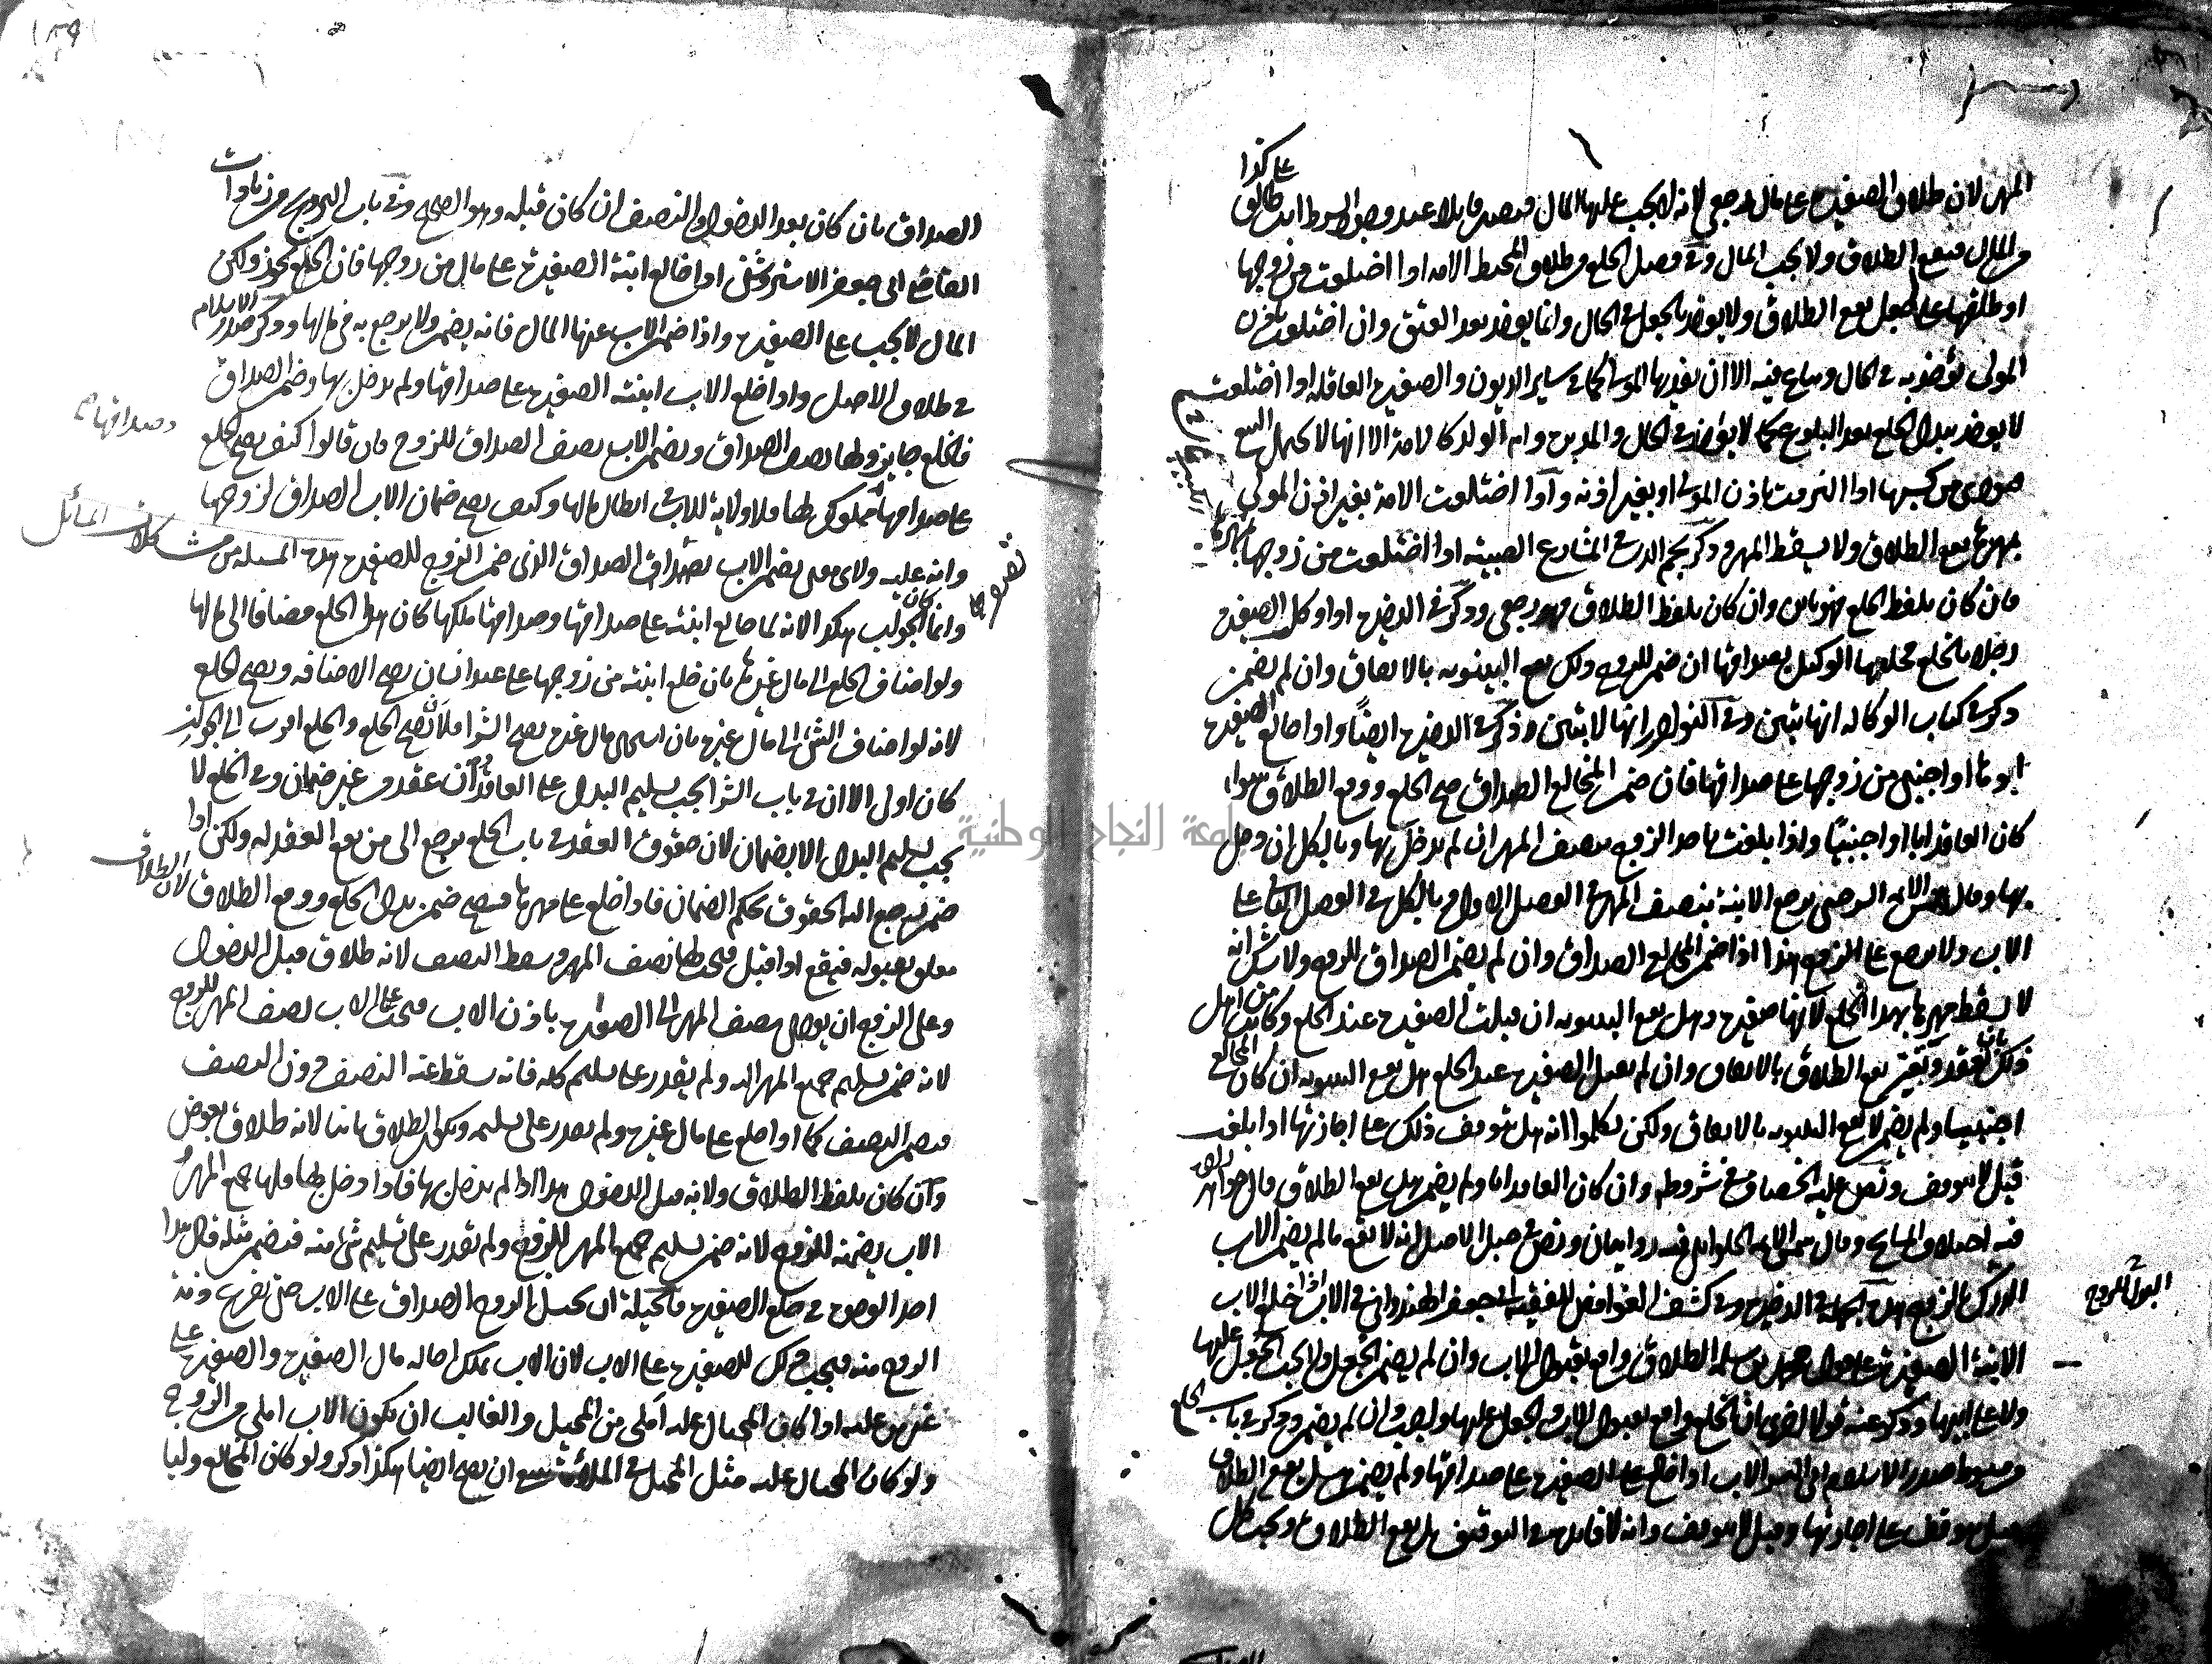 على كذا
المهر لان طلاق الصغيرة على مال رجعي لانه لا يجب عليها المال فيصير قابلا عند وجود الشرط انت طالق
في الحال فيقع الطلاق ولا يجب المال وفي فصل الخلع من طلاق المحيط الامة اذا اختلعت من زوجها
او طلقها على جعل يقع الطلاق ولا يؤخذ بالجعل في الحال وانما يؤخذ بعد العتق وان اختلعت باذن
المولى تؤخذ به في الحال وتباع فيه الا ان يفديها المولى كما في سائر الديون والصغيرة العاقلة اذا اختلعت
لا يؤخذ ببدل الخلع بعد البلوغ كما لا يؤخذ في الحال والمدبرة وام الولد كالامة الا انها لا تحتمل البيع
فتؤدي من كسبها اذا التزمت باذن المولى او بغير اذنه واذا اختلعت الامة بغير اذن المولى
بمهرها يقع الطلاق ولا يسقط المهر وذكر نجم الدين في المشارع الصبية اذا اختلعت من زوجها بمهرها
فان كان بلفظ الخلع فهو باين وان كان بلفظ الطلاق فهو رجعي وذكر في الذخيرة اذا وكلت الصغيرة
رجلا بالخلع فخلعها الوكيل بصداقها ان ضمن للزوج ذلك يقع البينونة بالاتفاق وان لم يضمن
ذكر في كتاب الوكالة انها تبين وفي النوادر انها لا تبين وذكر في الذخيرة ايضا واذا خالع الصغيرة
ابوها او اجنبي من زوجها على صداقها فان ضمن المخالع الصداق صح الخلع ووقع الطلاق سواء
كان العاقد ابا او اجنبيا واذا بلغت تاخذ الزوج بنصف المهر ان لم يدخل بها وبالكل ان دخل
بها وقال شمس الائمة السرخسي ترجع الابنة بنصف المهر في الفصل الاول وبالكل في الفصل الثاني على
الاب ولا ترجع على الزوج هذا اذا ضمن المخالع الصداق وان لم يضمن الصداق للزوج ولا شك انه
لا يسقط مهرها بهذا الخلع لانها صغيرة وهل يقع البينونة ان قبلت الصغيرة عند الخلع وكانت من اهل
ذلك العقد يقع الطلاق بالاتفاق وان لم تقبل الصغيرة عند الخلع هل يقع البينونة ان كان المخالع
اجنبيا ولم يضمن لا يقع البينونة بالاتفاق ولكن تكلموا انه هل يتوقف ذلك على اجازتها اذا بلغت
قيل لا يتوقف ونص عليه الخصاف في شروطه وان كان العاقد ابا ولم يضمن هل يقع الطلاق قال خواهر زاده
فيه اختلاف المشايخ وقال شمس الائمة الحلواني فيه روايتان ونص في حيل الاصل انه لا يقع ما لم يضمن الاب
الدرك للزوج هذه الجملة في الذخيرة وفي كشف الغوامض للفقيه ابي جعفر الهندواني في الاب اذا خلع الابنة
الابنة الصغيرة على قول محمد بن سلمة الطلاق واقع بقبول الاب وان لم يضمن الجعل ولا يجب الجعل عليها
ولا على ابيها وذكر عنه قولا اخر بان الخلع واقع بقبول الاب والجعل عليها واجب وان لم يضمن وذكر في باب الخلع
من مبسوط صدر الاسلام ابي اليسر الاب اذا خلع على الصغيرة على صداقها ولم يضمن هل يقع الطلاق
قيل يتوقف على اجازتها وقيل لا يتوقف وانه لا فائدة في التوقيف بل يقع الطلاق ويجب كل
البدل للزوج
الصداق بان كان بعد الدخول او النصف ان كان قبله وهو الصحيح وفي باب التزويج من زيادات
القاضي ابي جعفر الاستروشني اذا خالع ابنته الصغيرة على مال من زوجها فان الخلع يجوز ولكن
المال لا يجب على الصغيرة واذا ضمن الاب عنها المال فانه يضمن ولا يرجع به في مالها وذكر صدر الاسلام
في طلاق الاصل واذا خلع الاب ابنته الصغيرة على صداقها ولم يدخل بها وضمن الصداق
فالخلع جايز ولها نصف الصداق ويضمن الاب نصف الصداق للزوج فان قالوا كيف يصح الخلع
على صداقها وصداقها مملوك لها فلا ولاية للاب في ابطال مالها وكيف يصح ضمان الاب الصداق لزوجها
وانه عليه ولاي معنى يضمن الاب الصداق الذي ضمن الزوج للصغيرة هذه المسئلة من مشكلات المسائل
وانما كان الجواب هكذا لانه لما خالع ابنته على صداقها وصداقها ملكها كان هذا الخلع مضافا الى مالها
ولو اضاف الخلع الى مال غيرها بان خلع ابنته من زوجها على عبد انسان يصح الاضافة ويصح الخلع
لانه لو اضاف الشئ الى مال غيره بان اشترى بمال غيره يصح الشرا فلان يصح الخلع والخلع اقرب الى الجواز
كان اولى الا ان في باب الشرا يجب تسليم البدل على العاقد وان عقد من غير ضمان وفي الخلع لا
يجب تسليم البدل الا بضمان لان حقوق العقد في باب الخلع يرجع الى من يقع العقد له ولكن اذا
ضمن يرجع اليه الحقوق بحكم الضمان فاذا خلع على مهرها فيصح ضمن بدل الخلع ووقع الطلاق لان الطلاق
معلق بقبوله فيقع اذا قبل فيجب لها نصف المهر ويسقط النصف لانه طلاق قبل الدخول
وعلى الزوج ان يؤدي نصف المهر الى الصغيرة باذن الاب فيجب على الاب نصف المهر للزوج
لانه ضمن تسليم جميع المهر اليه ولم يقدر على تسليم كله فانه سقط عنه النصف دون النصف
فيضمن النصف كما اذا خلع على مال غيره ولم يقدر على تسليمه ويكون الطلاق باينا لانه طلاق بعوض
وان كان بلفظ الطلاق ولانه قبل الدخول هذا اذا لم يدخل بها فاذا دخل بها فلها جميع المهر
الاب يضمنه للزوج لانه ضمن تسليم جميع المهر للزوج ولم يقدر على تسليم شئ منه فيضمن مثله قال هذا
احد الوجوه في خلع الصغيرة والحيلة ان يحيل الزوج الصداق على الاب حتى يفرغ ذمة
الزوج منه فيجب ذلك للصغيرة على الاب لان الاب يملك احالة مال الصغير والصغيرة على
غيره من عليه اذا كان المحتال عليه املى من المحيل والغالب ان يكون الاب املى من الزوج
ولو كان المحتال عليه مثل المحيل في الملاءة ينبغي ان يصح ايضا هكذا ذكر ولو كان المخالع وليا